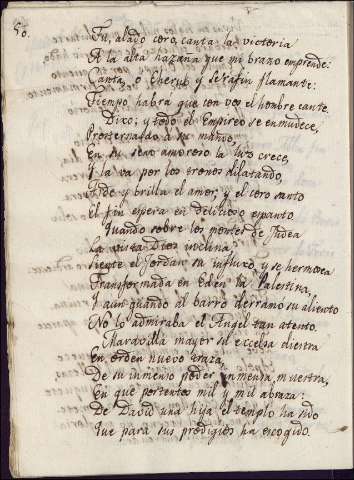 50.
Tu, alado coro, canta la victoria
A la alta hazaña que mi brazo emprende:
Canta, o Cherub y Serafin flamante:
Tiempo habrá que con vos el hombre cante.
Dixo; y todo el Empireo se enmudece,
Prosternado á su mando,
En su seno amoroso la luz crece,
I la va por los tronos dilatando,
Arde y brilla el amor; y el coro santo
El fin espera en delicioso espanto
Quando sobre los montes de Judea
La vista Dios inclina;
Siente el Jordan su influxo, y se hermosea
Transformada en Eden la Palestina,
I aun quando al barro derramó su aliento
No lo admiraba el Angel tan atento.
Maravilla mayor su excelsa diestra
En orden nuevo traza,
De su inmenso poder inmensa muestra,
En que portentos mil y mil abraza:
De David una hija el templo ha sido
Que para sus prodigios ha escogido.